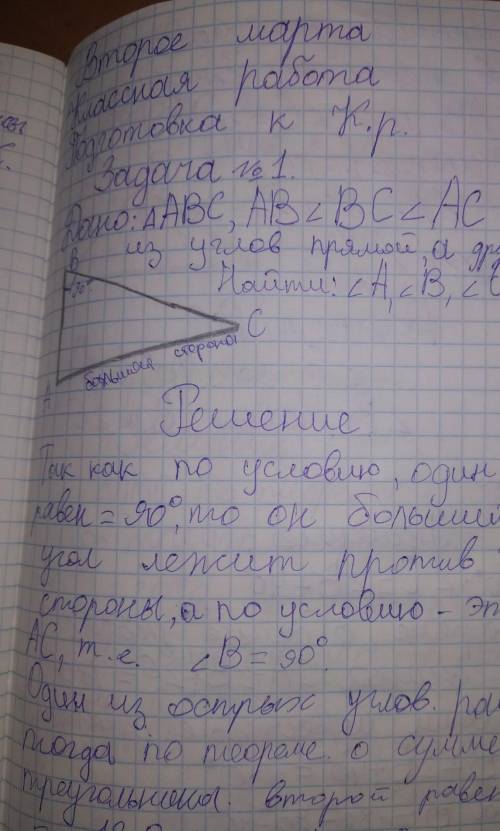 Второе марта
Классная работа
Подготовка к К.р.
Задача № 1.
Дано: △ABC, AB < BC < AC
из углов прямой, а дру
Найти: ∠A, ∠B, ∠C
B
90°
C
A
большая сторона
Решение
Так как по условию, один
равен = 90°, то он больший
угол лежит против
стороны, а по условию - эт
AC, т.е. ∠B = 90°.
Один из острых углов. ра
тогда по теореме. о сумме
треугольника. второй равен